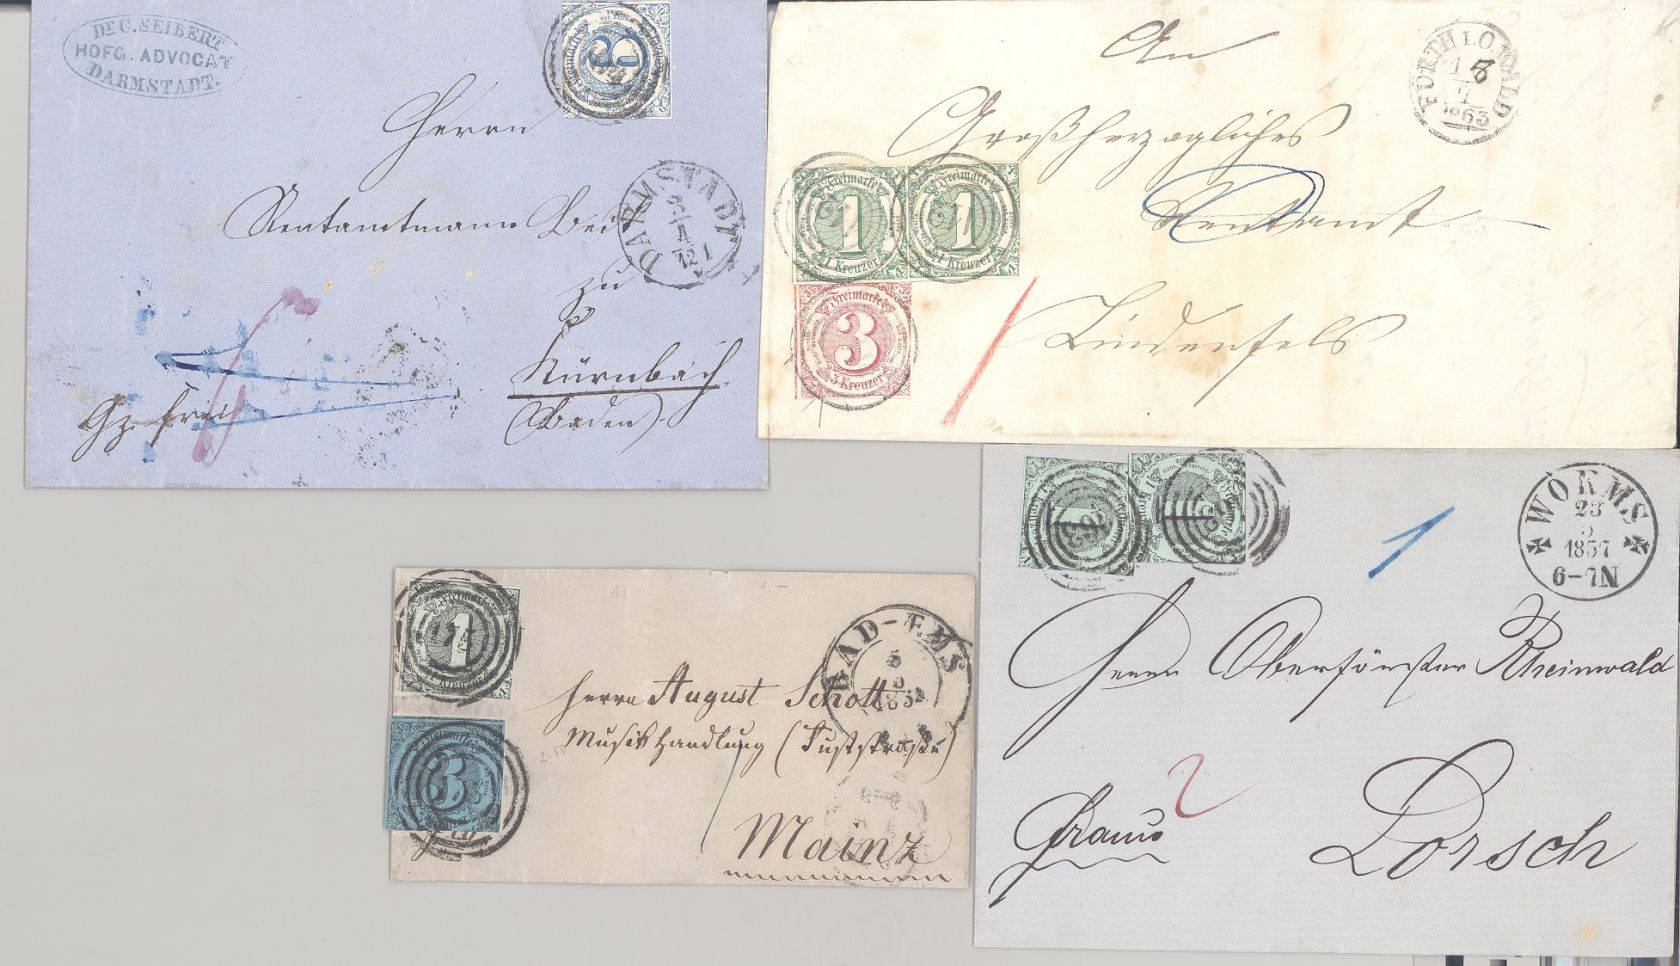 Dr C. SEIBERT
HOFG. ADVOCAT
DARMSTADT.
Freimarke
Herrn
Rentamtmann
DARMSTADT
zu
Kürnbach
(Baden)
Gz. frei
An
Großherzogliches
Rentamt
Lindenfels
FÜRTH I. O. WALD
1863
Freimarke
1
1 Kreuzer
Freimarke
1
1 Kreuzer
Freimarke
3
3 Kreuzer
Freimarke
1
1 Kreuzer
Freimarke
3
BAD-EMS
5
Herrn August Schott
Musikhandlung (Fuststraße)
Mainz
1
WORMS
23
5
1857
6-7N
Herrn Oberförster Rheinwald
2
franco
Lorsch